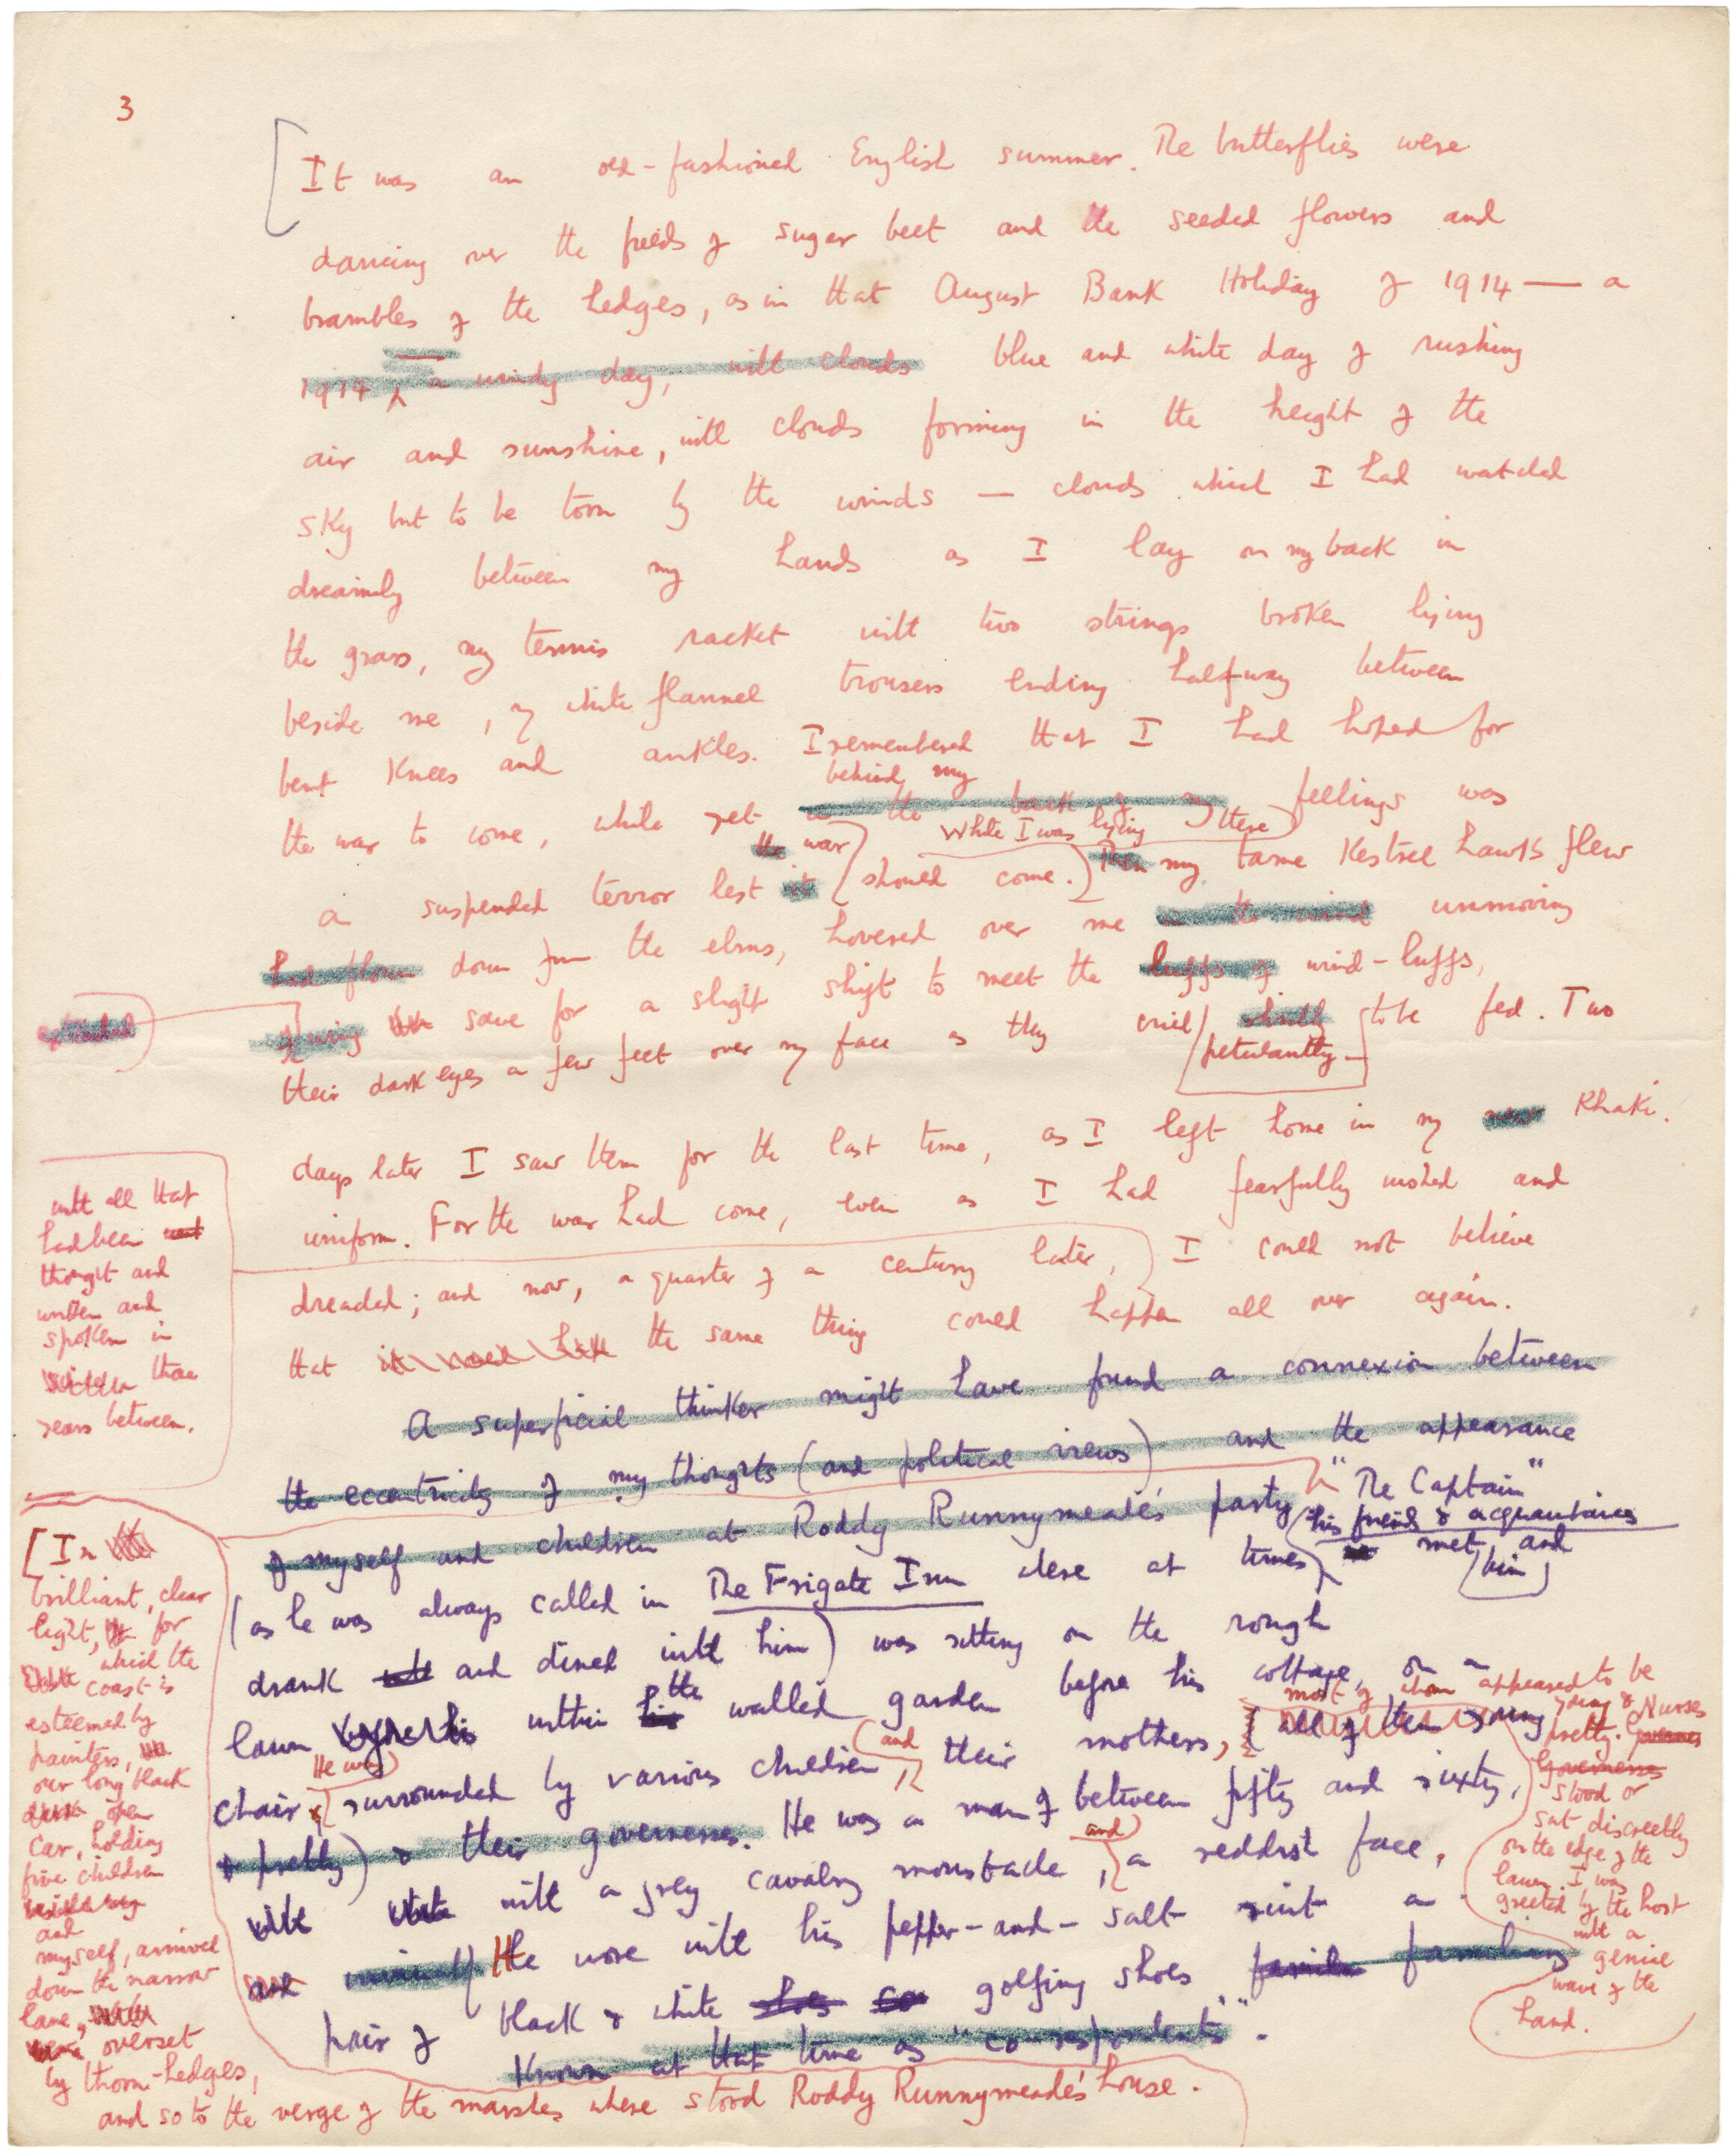 3
It was an old-fashioned English summer. The butterflies were
dancing over the fields of sugar beet and the seeded flowers and
brambles of the hedges, as in that August Bank Holiday of 1914 — a
1914, a windy day, with clouds blue and white day of rushing
air and sunshine, with clouds forming in the height of the
sky but to be torn by the winds — clouds which I had watched
dreamily between my hands as I lay on my back in
the grass, my tennis racket with two strings broken lying
beside me, my white flannel trousers ending halfway between
bent knees and ankles. I remembered that I had hoped for
behind my
the war to come, while yet in the back of my feelings was
the war while I was lying there
a suspended terror lest it should come. Then my tame kestrel hawks flew
had flown down from the elms, hovered over me in the wind unmoving
save for a slight shift to meet the luffs of wind-luffs,
their dark eyes a few feet over my face as they cried shrilly to be fed. Two
petulantly
days later I saw them for the last time, as I left home in my new Khaki
uniform. For the war had come, even as I had fearfully wished and
dreaded; and now, a quarter of a century later, I could not believe
that the same thing could happen all over again.
with all that
had been
thought and
written and
spoken in
those
years between.
A superficial thinker might have found a connexion between
the eccentricity of my thoughts (and political views) and the appearance
of myself and children at Roddy Runnymeade's party "The Captain"
his friends & acquaintances
(as he was always called in The Frigate Inn where at times met and
him
drank and dined with him) was sitting on the rough
lawn before his within his the walled garden before his cottage, on a
chair surrounded by various children, and their mothers, all of them young
He was
& pretty) & their governesses. He was a man of between fifty and sixty,
with a grey cavalry moustache, and a reddish face.
and He wore with his pepper-and-salt suit a
pair of black & white shoes golfing shoes familiar
known at that time as "correspondents".
most of whom appeared to be
young &
pretty. Nurses
Governesses
stood or
sat discreetly
on the edge of the
lawn. I was
greeted by the host
with a
genial
wave of the
hand.
[In
brilliant, clear
light, for
which the
coast is
esteemed by
painters,
our long black
open
car, holding
five children
and
myself, arrived
down the narrow
lane,
overset
by thorn-hedges,
and so to the verge of the marshes where stood Roddy Runnymeade's house.